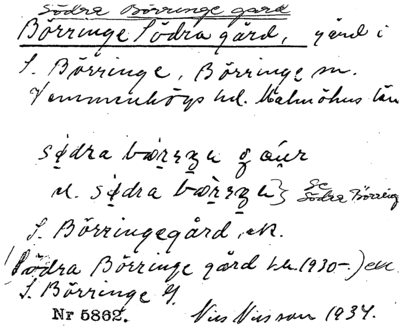 Södra Börringe gård
Börringe Södra gård, gård i
S. Börringe, Börringe sn.
Vemmenhögs hd. Malmöhus län
södra
södra se Södra Börringe
S. Börringegård, ek.
(Södra Börringe gård 1930-) ek
S. Börringe g.
Nr 5862. Nils Nilsson 1934.